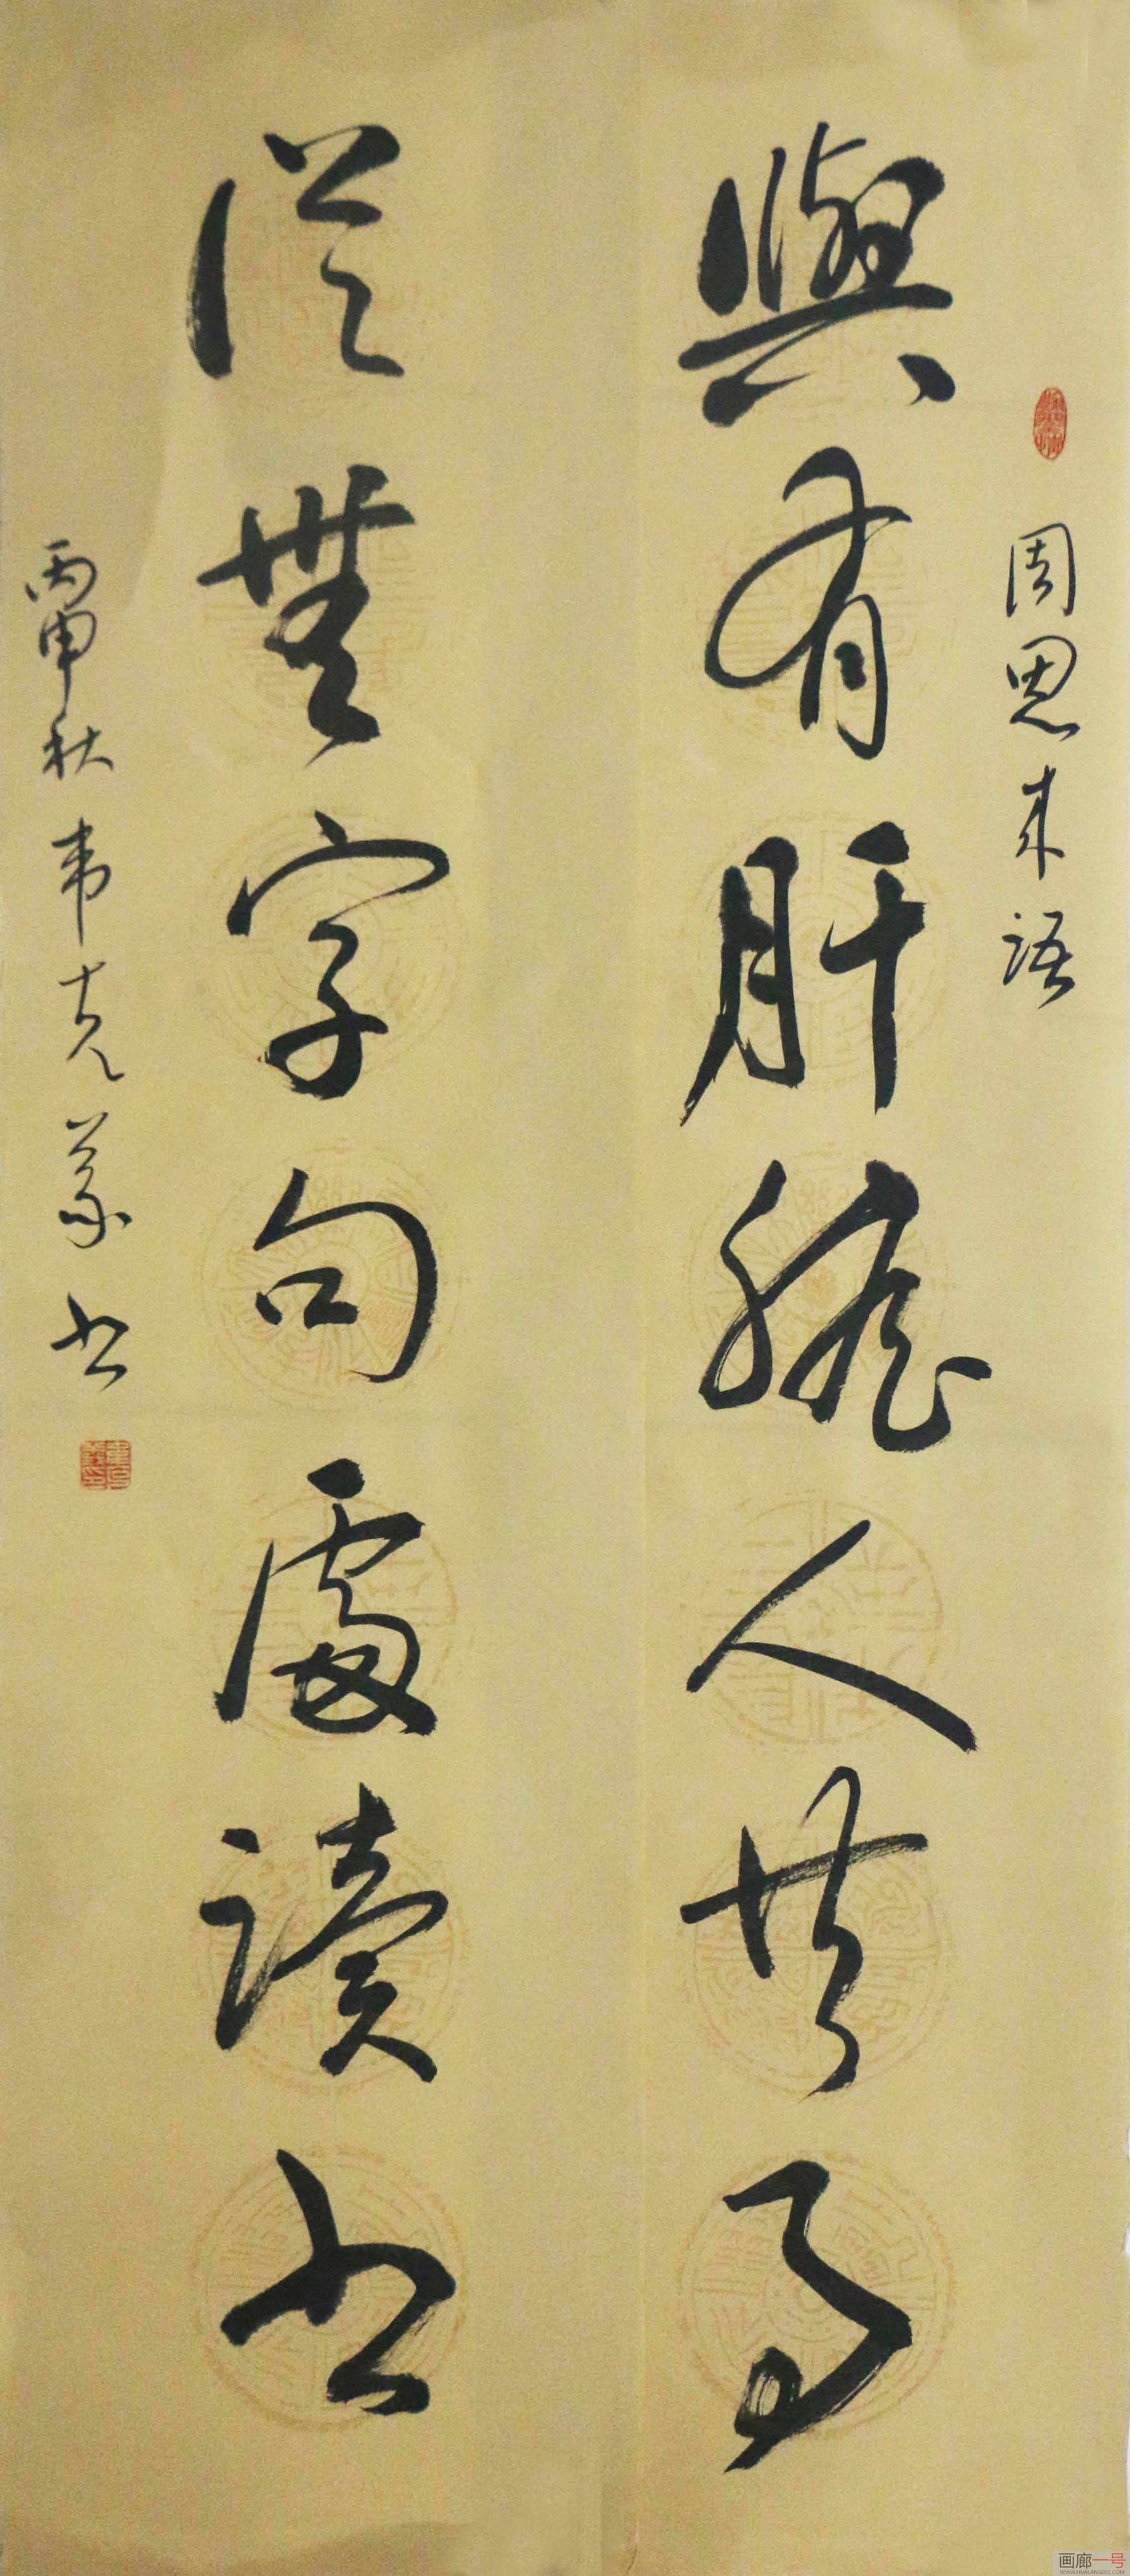 周恩来语
與有肝膽人共事
從無字句處讀书
丙申秋韦克义书
画廊一号